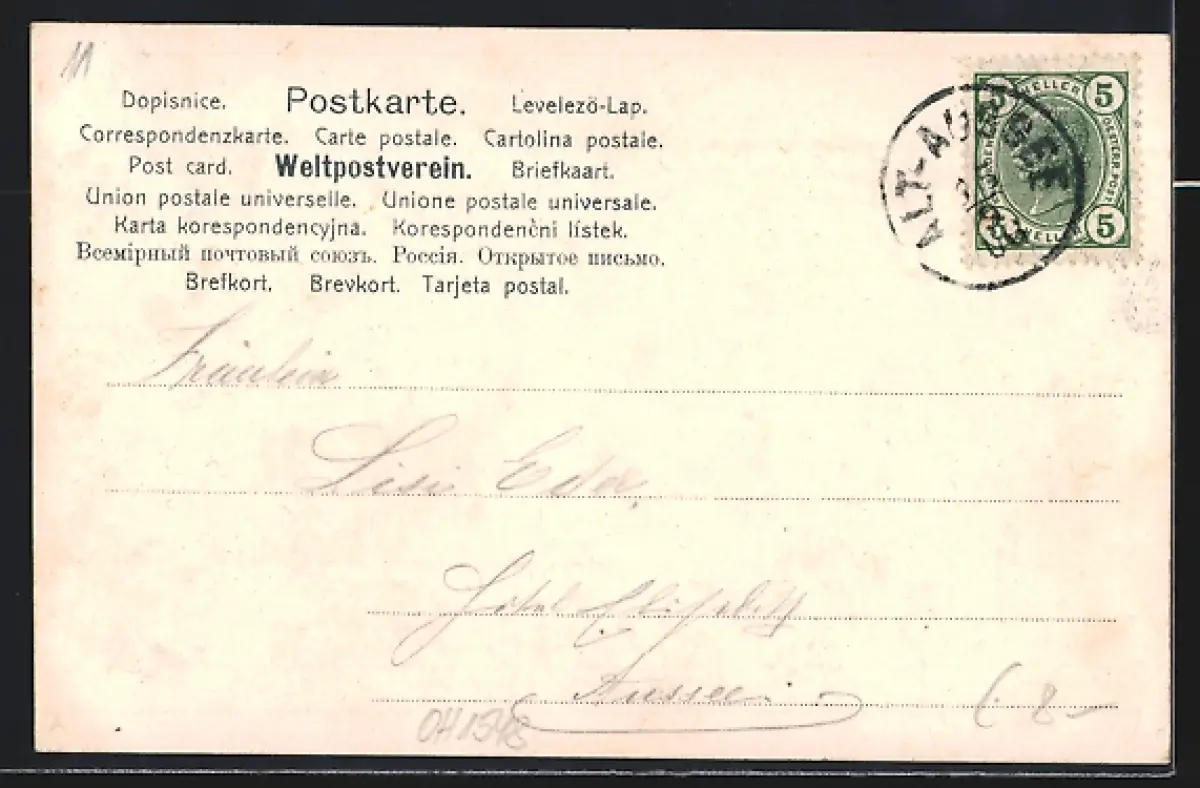 11
Dopisnice. Postkarte. Levelező-Lap.
Correspondenzkarte. Carte postale. Cartolina postale.
Post card. Weltpostverein. Briefkaart.
Union postale universelle. Unione postale universale.
Karta korespondencyjna. Korespondenčni lístek.
Всемірный почтовый союзъ. Россія. Открытое письмо.
Brefkort. Brevkort. Tarjeta postal.
5 HELLER 5
OESTERR. POST
5 HELLER 5
ALT-AUSSEE
Fräulein
Lisi Eder,
Hôtel Elisabeth
Aussee.
8-